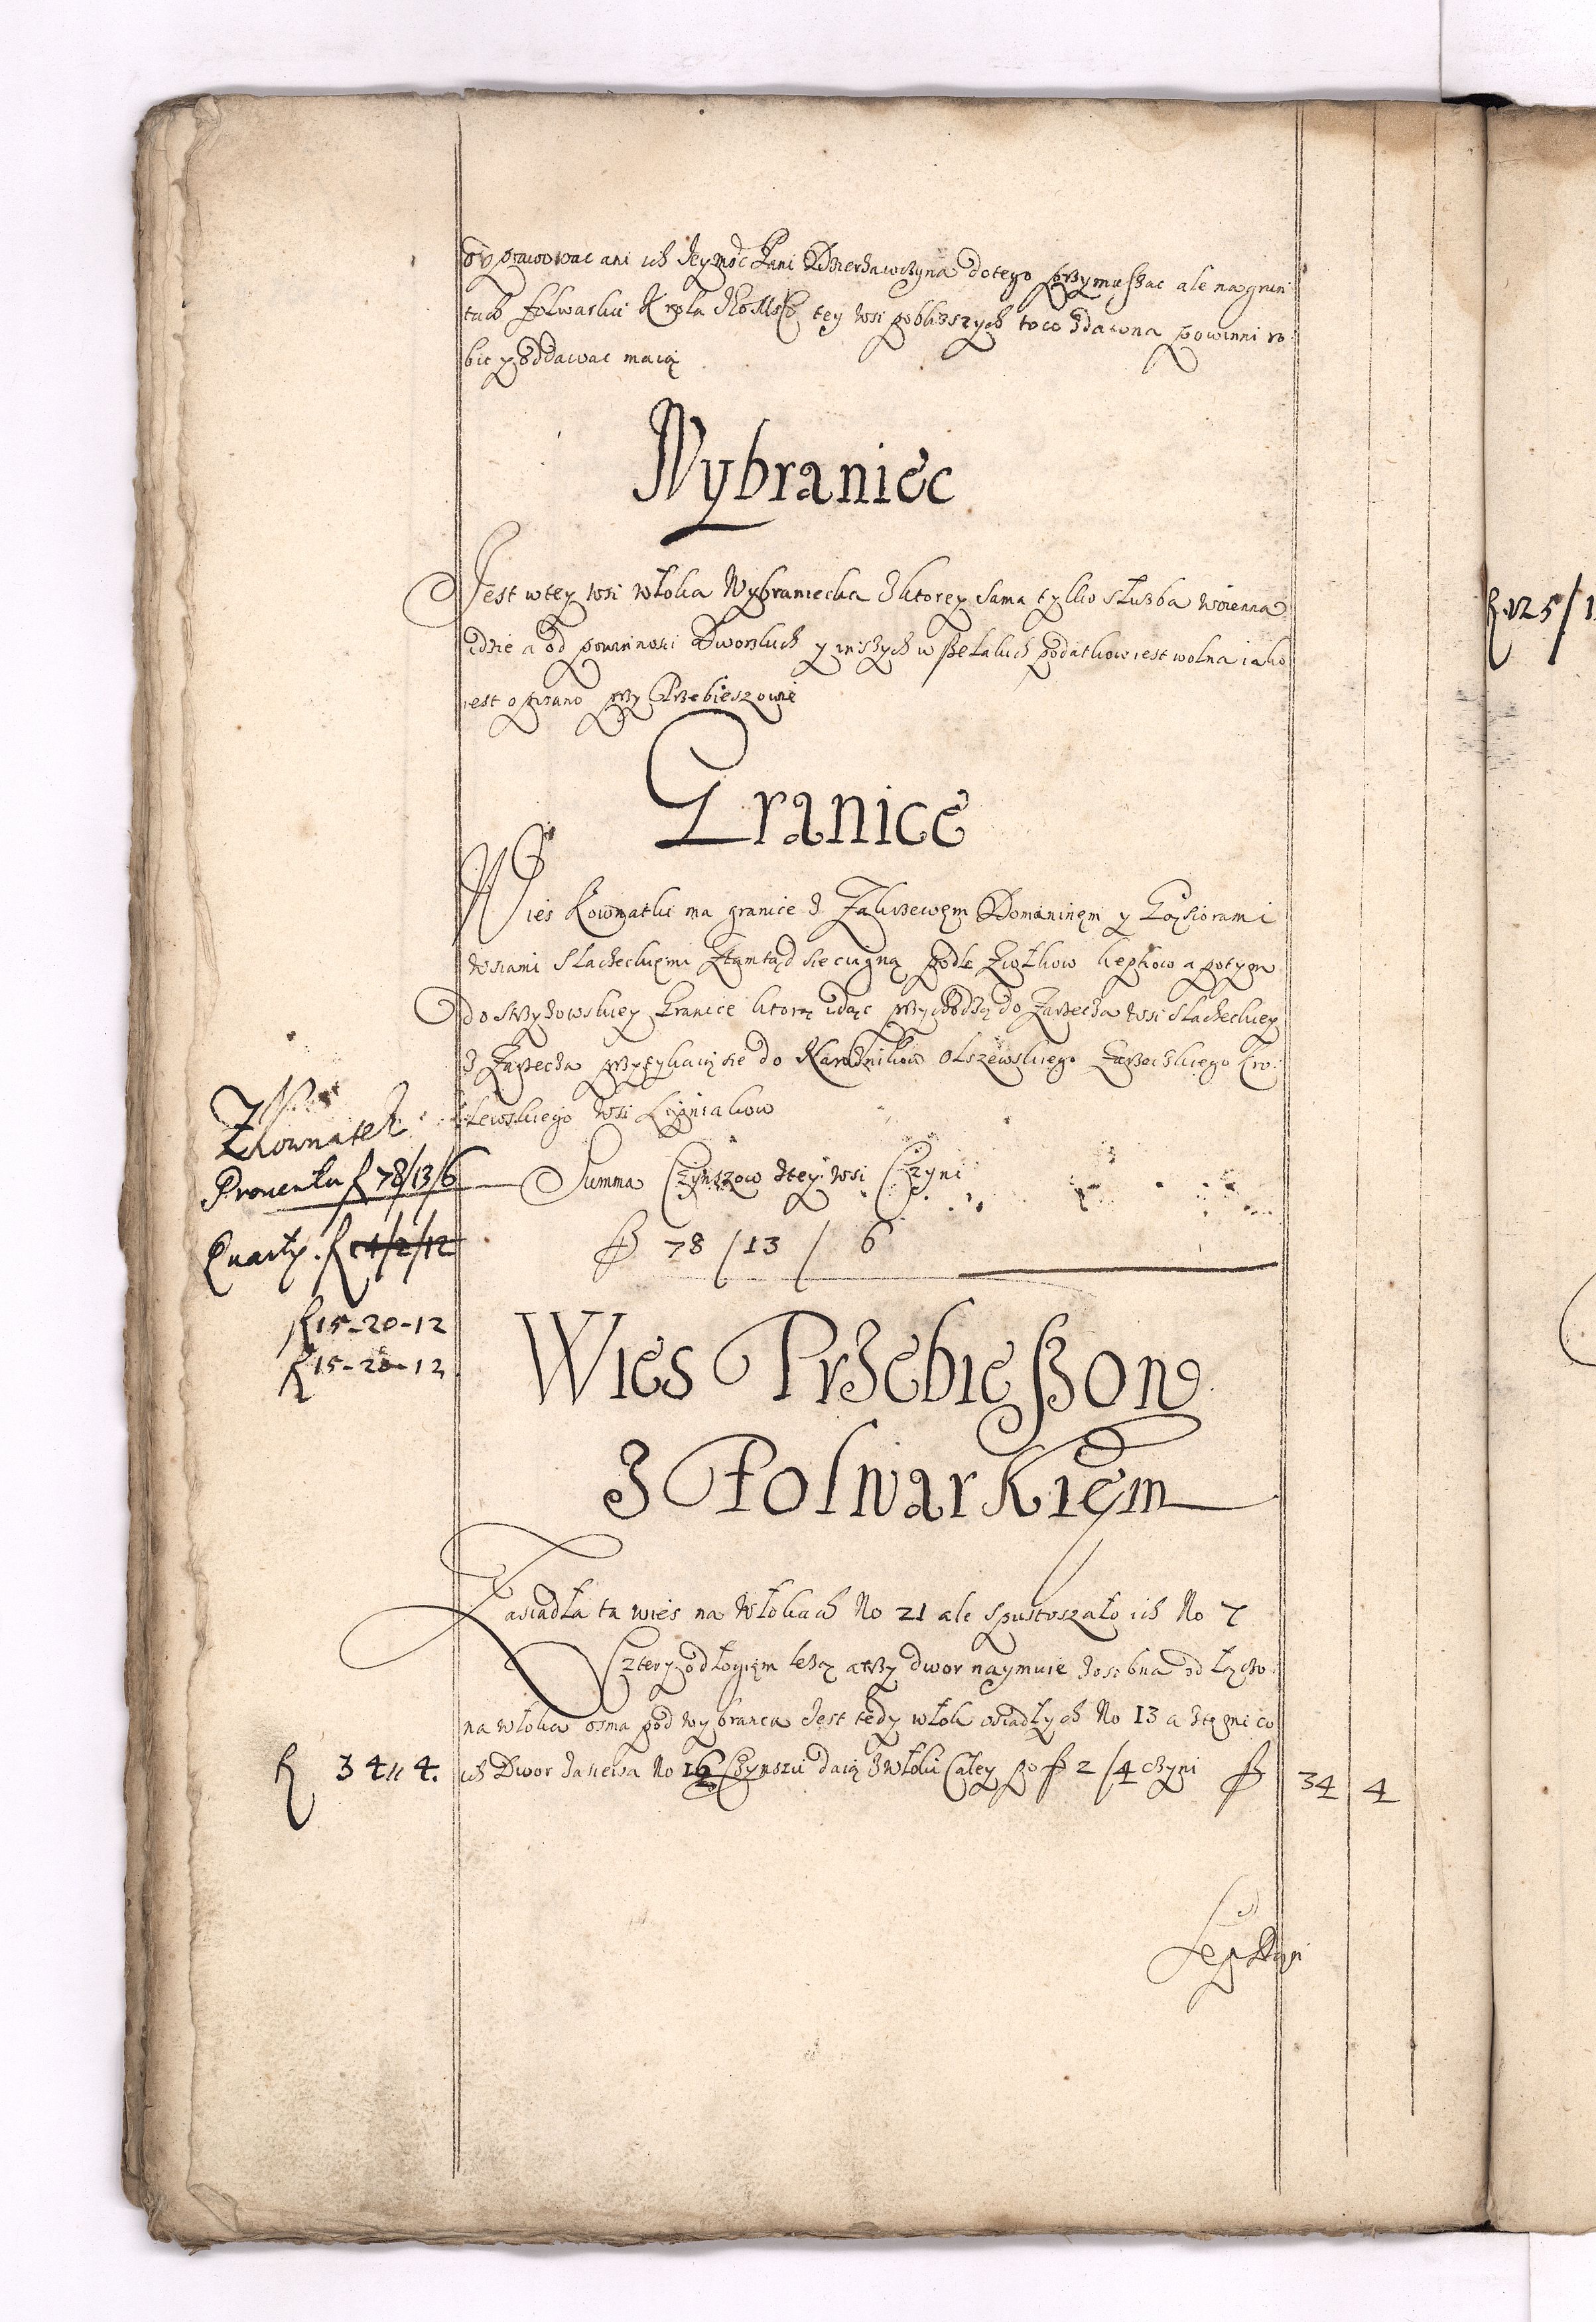 ani ich Jeymość Pani Dzierżawczyna do tego przymuszac ale na grun
tach folwarku Krola JKoMsci tey wsi pobliższych to co zdawna powinni ro
bic y oddawac maią
Wybraniec
Jest w tey wsi włoka Wybraniecka z ktorey sama tylko służba woienna
idzie a od powinnosci Dworskich y inszych wszelakich podatkow iest wolna iako
iest opisano przy Przebieszowie
Granice
Wies Rowmatki ma granice z Zakrzewęm Domaninęm y Gąsiorami
wsiami slacheckięmi Ztamtąd sie ciągną podle Ziołkow kępkow a potym
do strzyżowskiey Granice ktorą idąc przychodzą do Zarzecza wsi slacheckiey
z Zarzecza przytykaią sie do Olszewskiego Zarzeckiego Kro
lewskiego wsi Lipniakow
Z Rownatek
Prowentu f 78/13/6
Summa Czynszow ztey wsi Czyni
fl 78 / 13 / 6
Quarty. f
f 15-20-12
f 15-20-12
Wies Przebieszow
Z Folwarkięm
Zasiadła ta wies na włokach No 21 ale spustoszało ich No 7
Cztery odłogięm leżą a trzy dwor naymuie zosobna odłączo
na włoka osma pod wybranca Jest tedy włok osiadłych No 13 a ztęmi co
ich Dwor zasiewa No 16 Czynszu daią z włoki Całey po fl 2 /4 czyni fl 34 4
f 34 // 4.